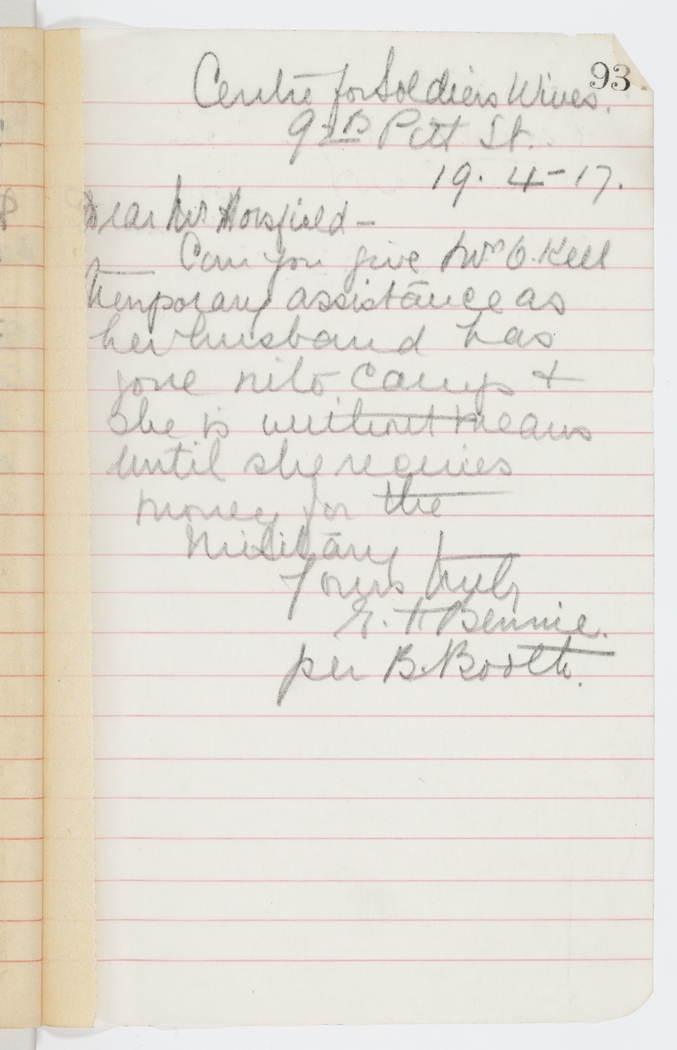 93
Centre for Soldiers Wives.
92B Pitt St.
19. 4-17.
Dear Mr Horsfield-
Can you give Mrs O. Kell
temporary assistance as
her husband has
gone into camp +
she is without means
until she receives
money for the
Military
Yours truly
E. H Bennie.
per B. Booth.